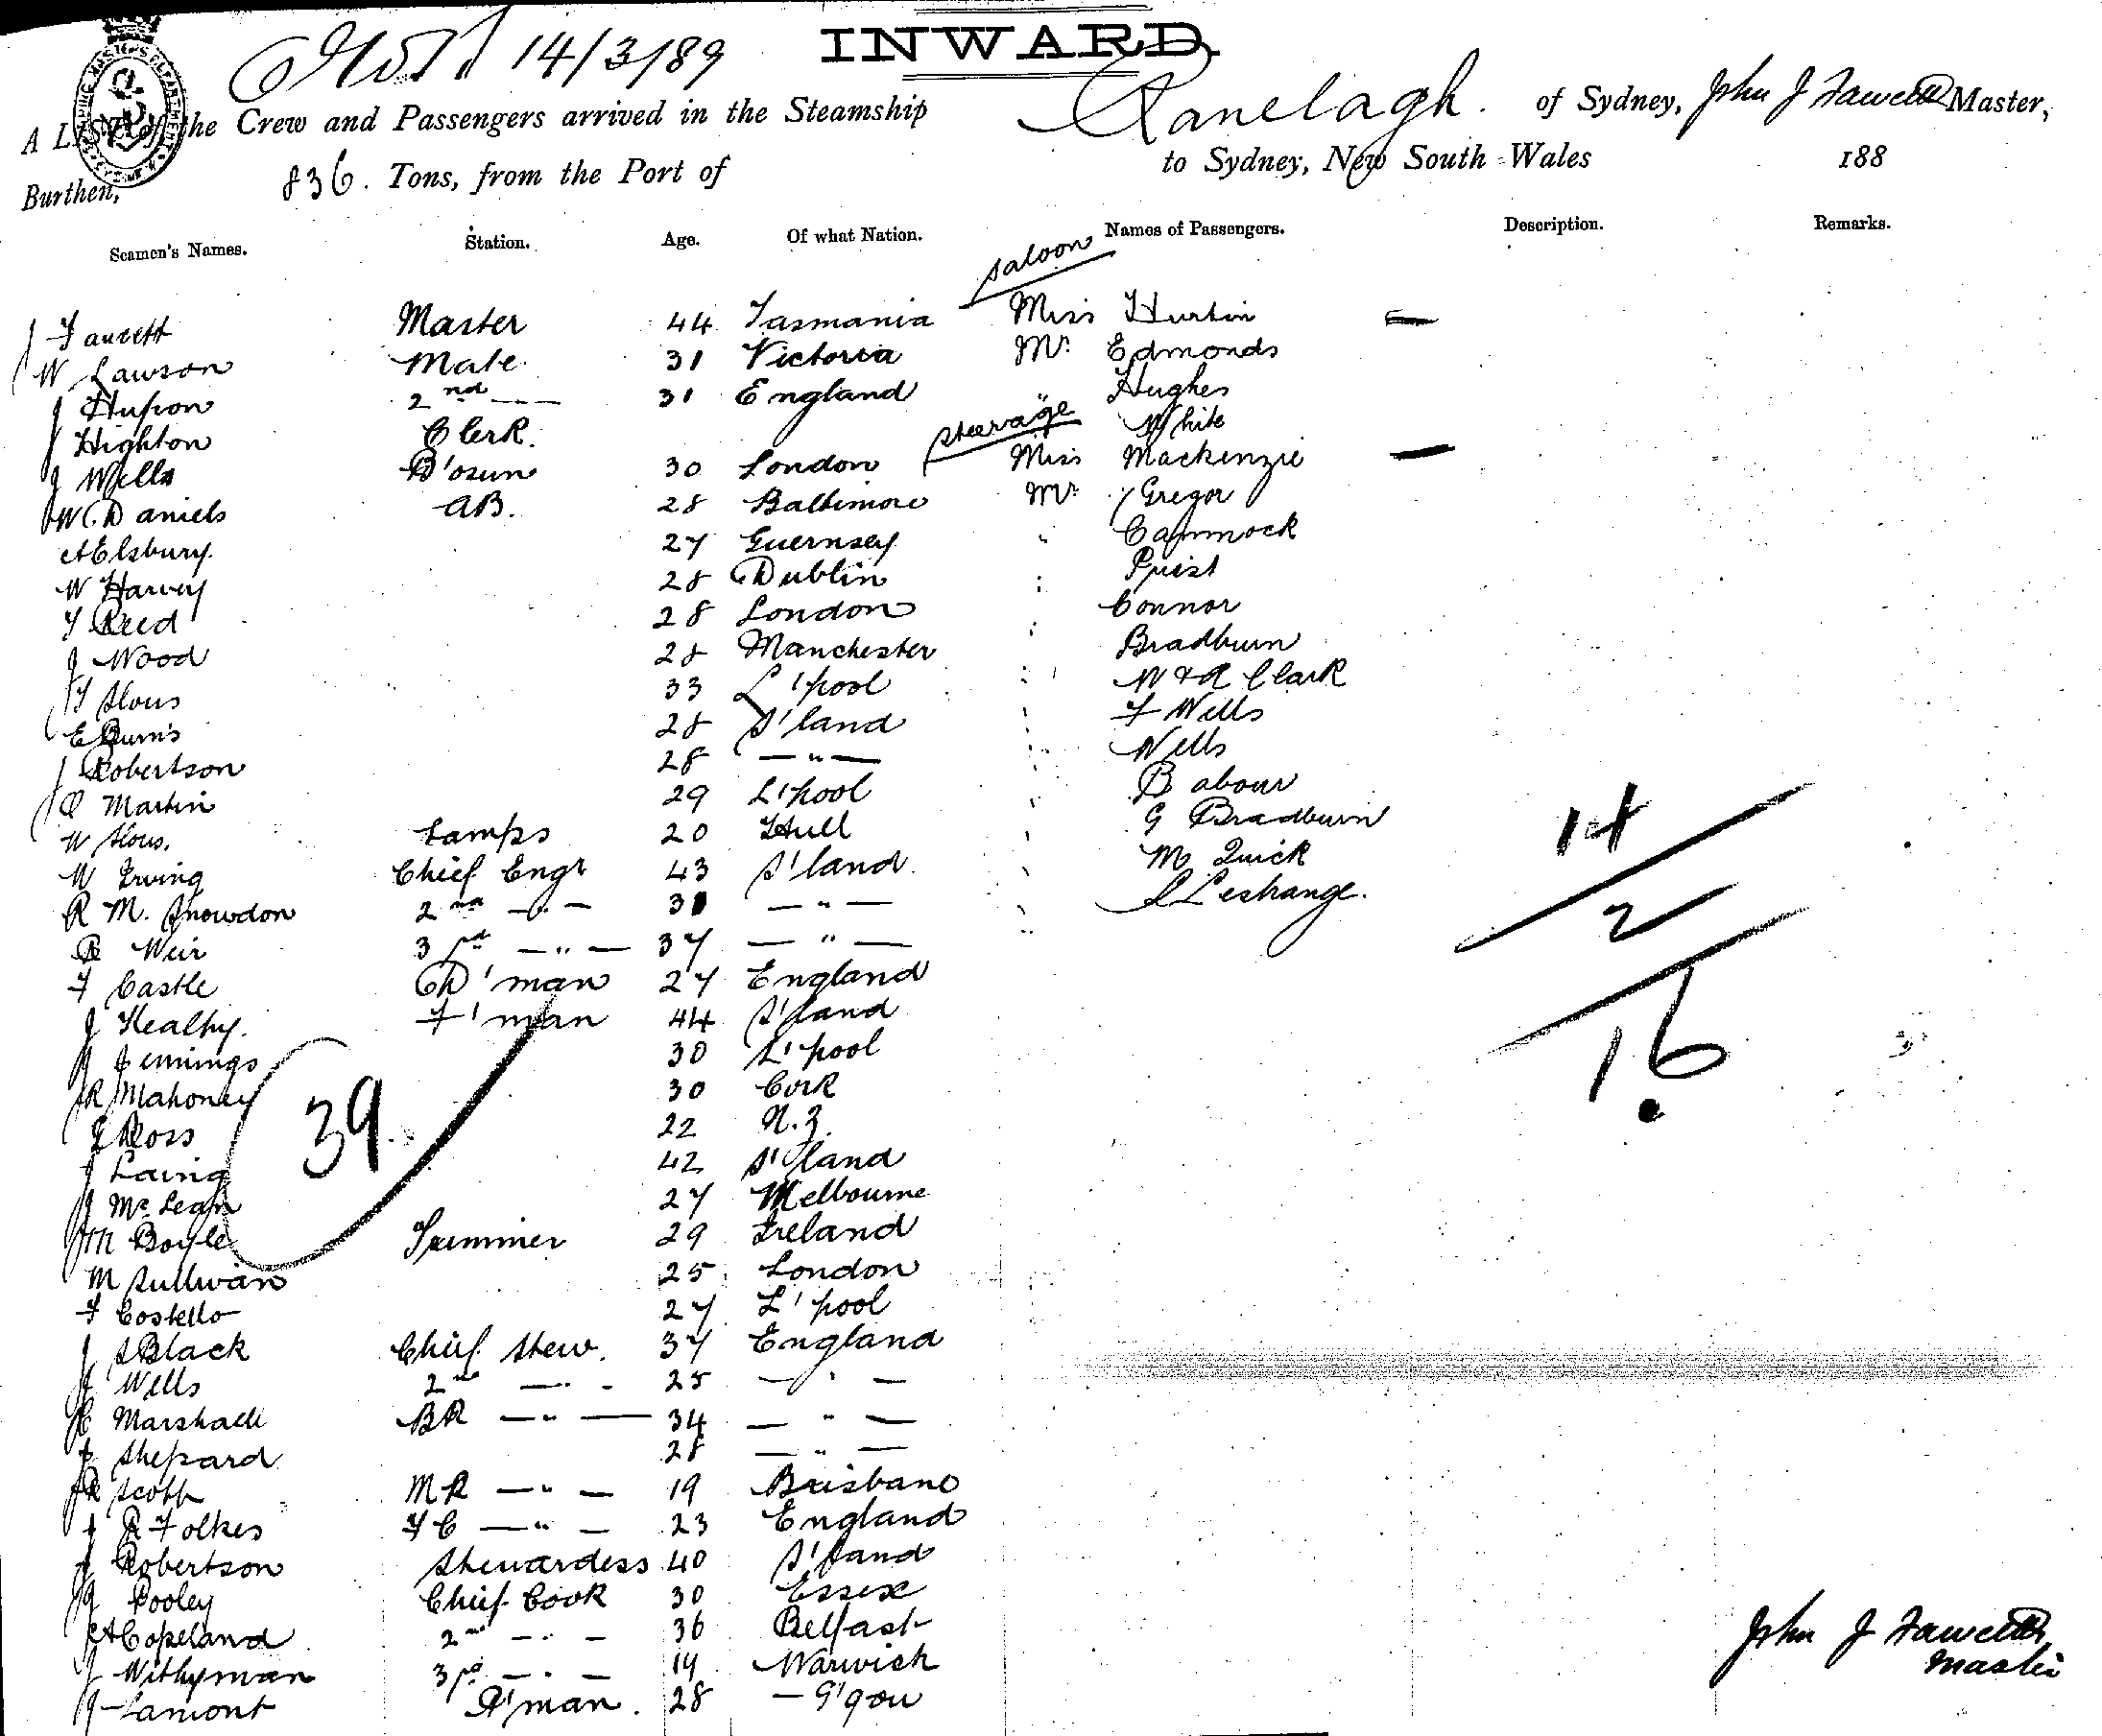 INWARD
14/3/89
A LIST of the Crew and Passengers arrived in the Steamship Ranelagh. of Sydney, John J Fawcett Master,
Burthen, 836. Tons, from the Port of to Sydney, New South Wales 188
Seamen's Names. Station. Age. Of what Nation. Names of Passengers. Description. Remarks.
saloon
J Fawcett Master 44 Tasmania Miss Hurtin —
W Lawson Mate 31 Victoria Mr. Edmonds
J Hufron 2nd — 31 England " Hughes
J Highton Clerk. White
steerage
J Wells B'osun 30 London Miss Mackenzie —
W C. Daniels AB. 28 Baltimore Mr. Gregor
A Elsbury. 27 Guernsey " Cammock
W Harvey 28 Dublin : Priest
F Reed 28 London Connor
J Wood 28 Manchester : Bradburn
F Slous 33 L'pool : W & A Clark
E Burns 28 S'land F Wells
J Robertson 28 — " — Wells
Martin 29 L'pool B abour
W Slous. Lamps 20 Hull G Bradburn
W Irving Chief Engr 43 S'land. M Quick
R M. Snowdon 2nd — " — 31 — " — Lestrange.
R Weir 3rd — " — 37 — " —
F Castle D'man 27 England
J Healhy. F'man 44 S'land
J Jennings 30 L'pool
R Mahoney 30 Cork
Ross 22 N.Z.
J Laing 42 S'land
J McLean 27 Melbourne
M Boyle Trimmer 29 Ireland
M Sullivan 25 London
F Costello 27 L'pool
J S Black Chief Stew. 37 England
J Wells 2nd — " — 25 — " —
C Marshall BR — " — 34 — " —
F Shepard 28 — " —
R Scott MR — " — 19 Brisbane
J R Folkes FC — " — 23 England
J Robertson Stewardess 40 S'land
G Pooley Chief Cook 30 Essex
A Copeland 2nd — " — 36 Belfast
J Withyman 3rd — " — 17 Warwick
J Lamont P'man. 28 — G'gow
39
14
2
16
John J Fawcett
Master